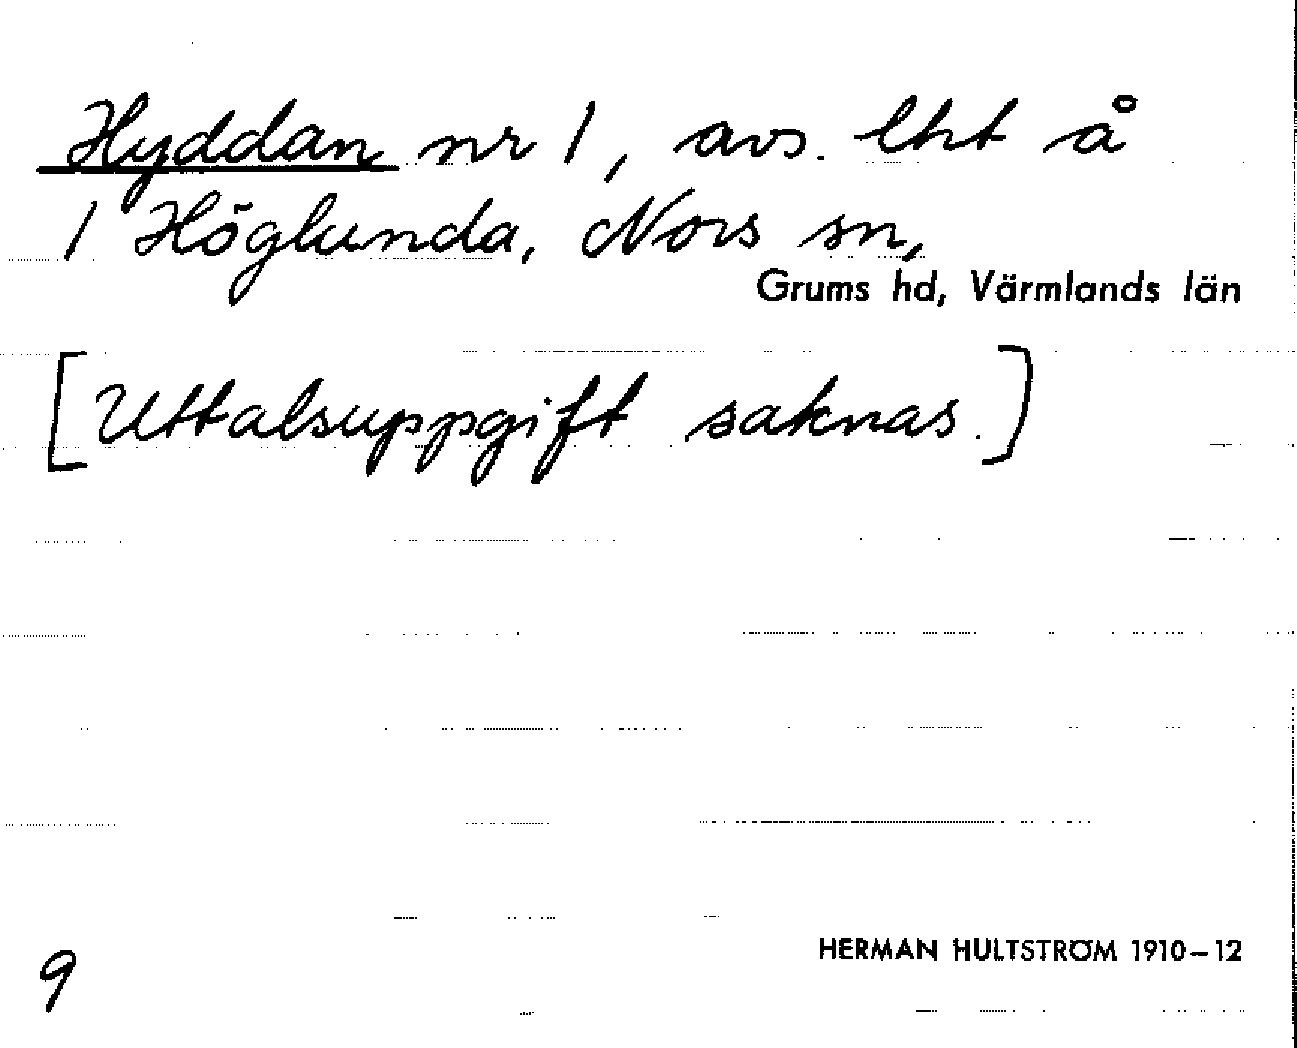 Hyddan nr 1, avs. lht å
1 Höglunda, Nors sn,
Grums hd, Värmlands län
[Uttalsuppgift saknas.]
9
HERMAN HULTSTRÖM 1910–12